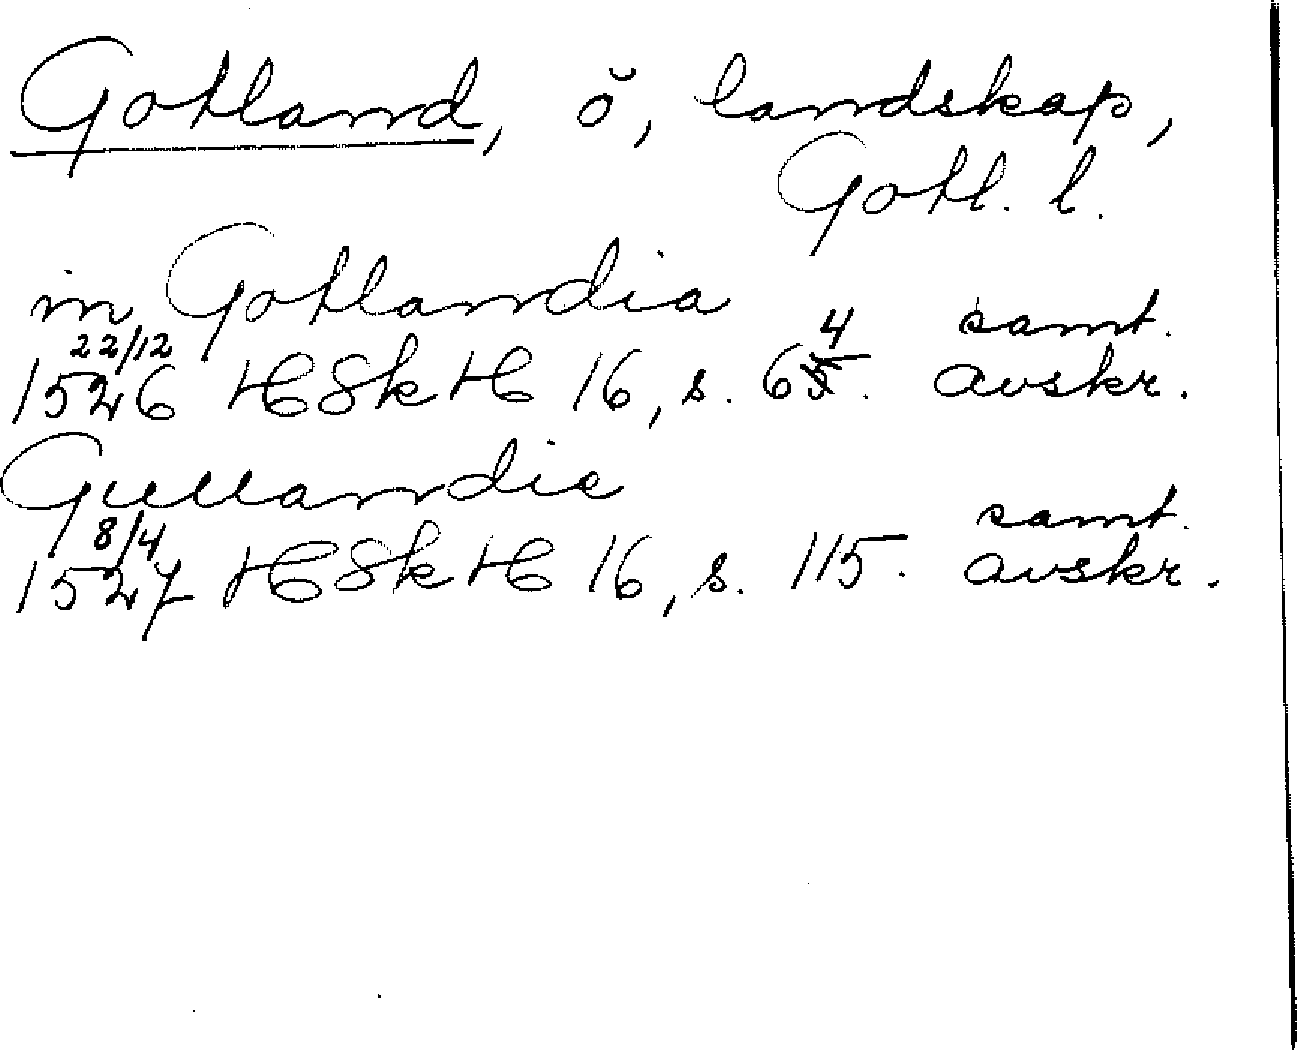 Gotland, ö, landskap,
Gotl. l.
in Gotlandia
22/12 4 samt.
1526 HSkH 16, s. 65. avskr.
Gullandie
8/4 samt.
1527 HSkH 16, s. 115. avskr.